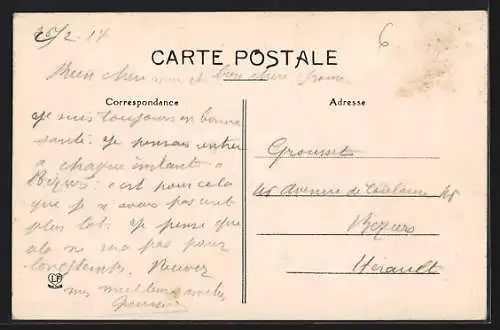 25/2. 14
6
CARTE POSTALE
Bien cher et bien chère
Correspondance
Adresse
Je suis toujours en bonne
santé. Je pensais entrer
à chaque instant à
Béziers: c'est pour cela
que je n'avais pas écrit
plus tôt. Je pense que
ne sera pas pour
longtemps. Recevez
mes meilleurs
Grousset
45 Avenue de Toulouse 45
Beziers
Hérault